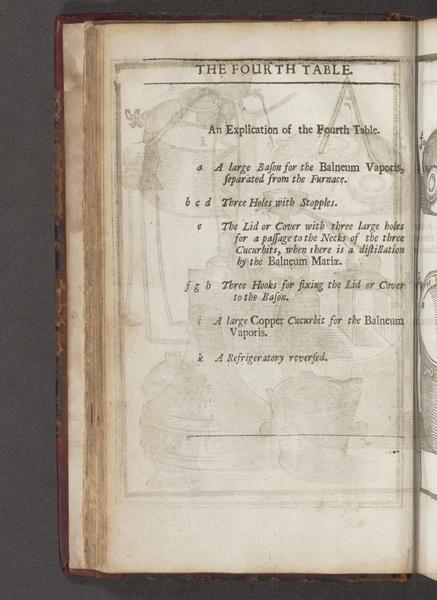 THE FOURTH TABLE.
An Explication of the Fourth Table.
a A large Baſon for the Balneum Vaporis,
ſeparated from the Furnace.
b c d Three Holes with Stopples.
e The Lid or Cover with three large holes
for a paſſage to the Necks of the three
Cucurbits, when there is a diſtillation
by the Balneum Mariæ.
f g h Three Hooks for fixing the Lid or Cover
to the Baſon.
i A large Copper Cucurbit for the Balneum
Vaporis.
k A Refrigeratory reverſed.